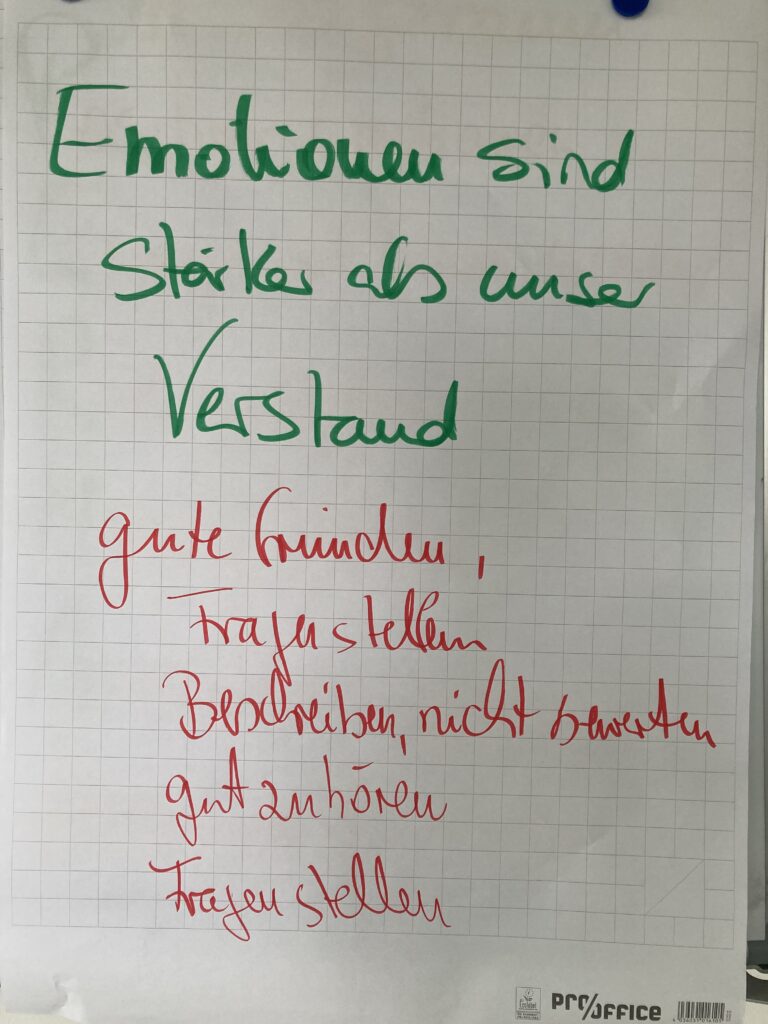 Emotionen sind
stärker als unser
Verstand
gute Gründen,
Fragen stellen
Beschreiben, nicht bewerten
gut zuhören
Fragen stellen
PRO/OFFICE